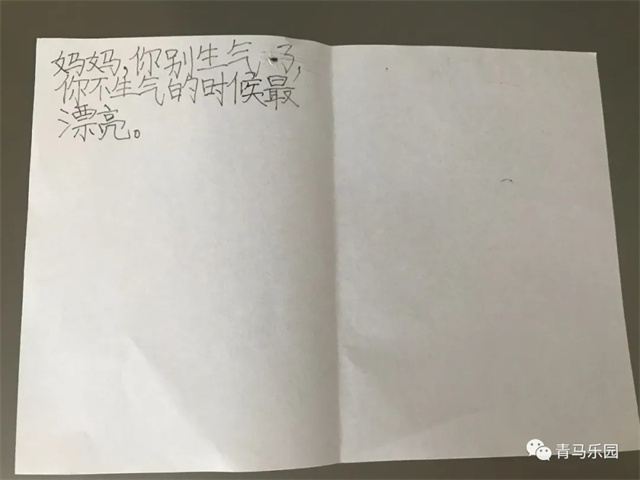 妈妈,你别生气了,
你不生气的时候最
漂亮。
青马乐园